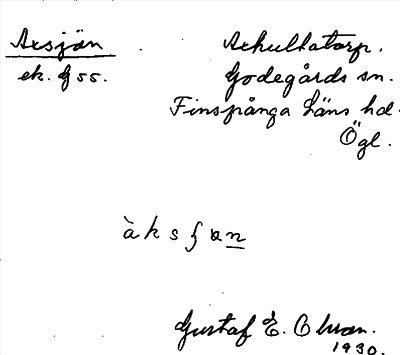 Axsjön
ek. G 55.
Axhultatorp.
Godegårds sn.
Finspånga Läns hd.
Ögl.
àksʃɑn
Gustaf E. Olson.
1930.